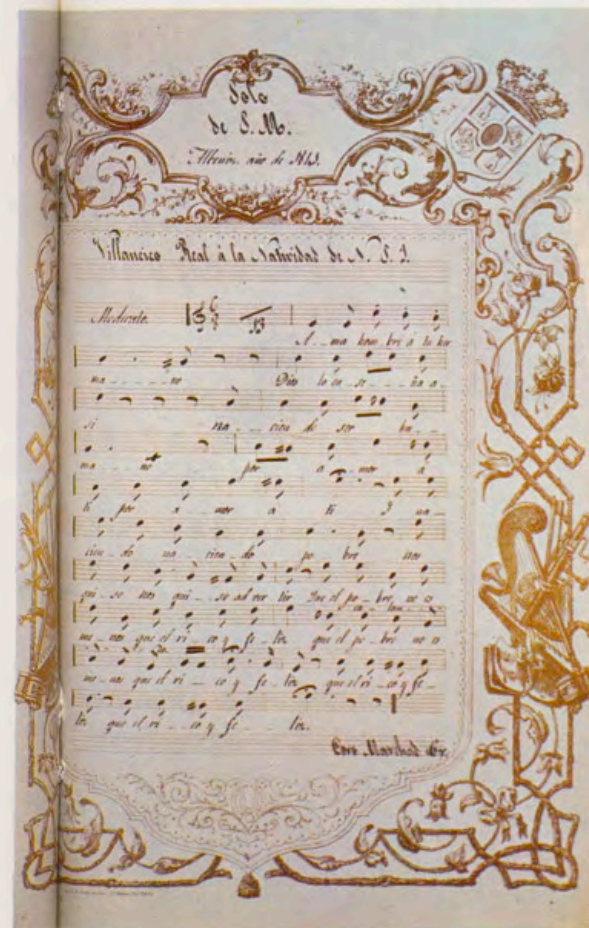 Solo
de S. M.
año de 1843.
Villancico Real á la Natividad de N. S. J.
Moderato. 13
A - ma hom - bre á tu her
ma - - - - no Dios lo en - se - - ña a
si na - - - cien - do ser hu -
ma - - no por a - mor á
ti por a - mor a ti I na -
cien - do na - cien - do po - bre nos
qui - so nos qui - so ad ver tir Que el po - bre no es
me - nos que el ri - co y fe - liz que el po - bre no es
me - nos que el ri - co y fe - liz que el ri - co y fe -
liz que el ri - - co y fe - - liz.